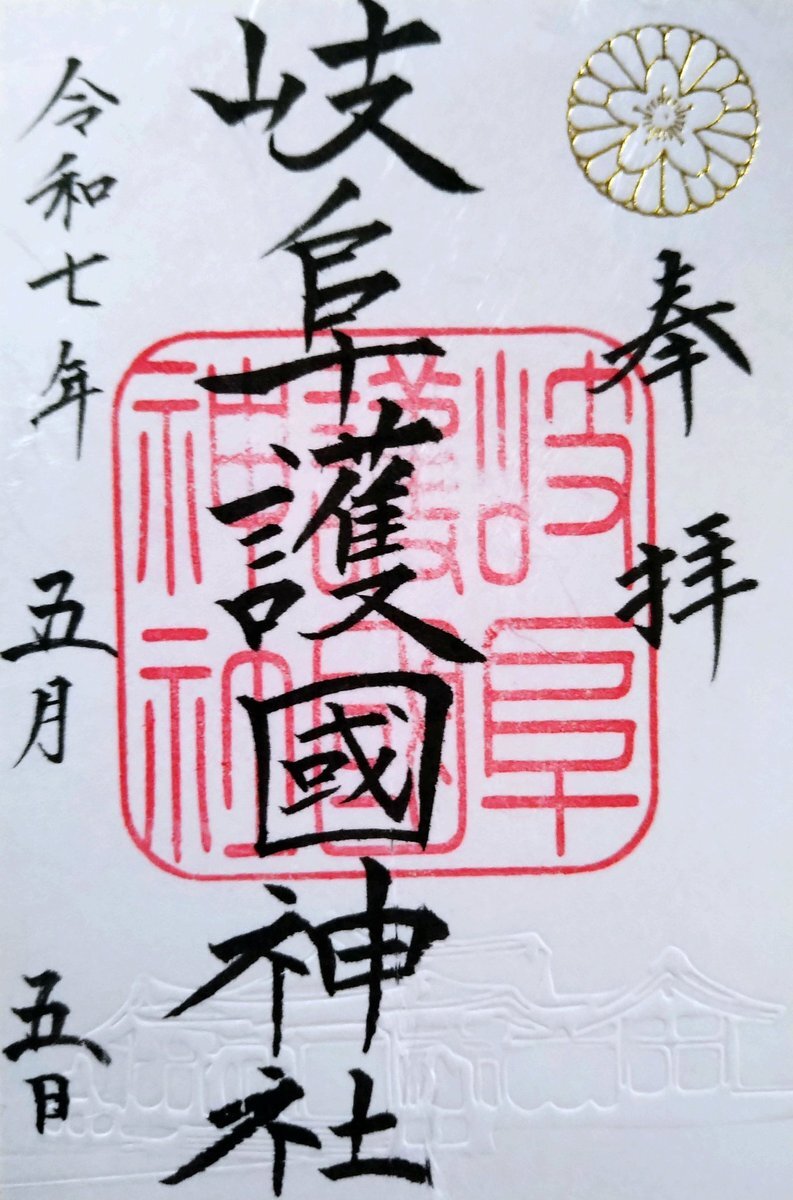 奉拝
岐阜護國神社
岐阜
護國
神社
令和七年
五月
五日